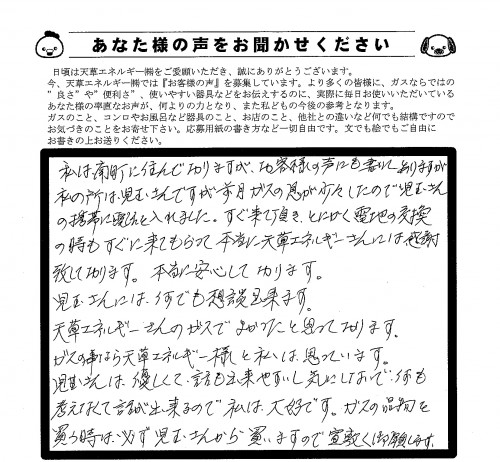 あなた様の声をお聞かせください
日頃は天草エネルギー㈱をご愛顧いただき、誠にありがとうございます。
今、天草エネルギー㈱では『お客様の声』を募集しています。より多くの皆様に、ガスならではの
”良さ”や”便利さ”、使いやすい器具などをお伝えするのに、実際に毎日お使いいただいている
あなた様の率直なお声が、何よりの力となり、また私どもの今後の参考となります。
ガスのこと、コンロやお風呂など器具のこと、お店のこと、他社との違いなど何でも結構ですので
お気づきのことをお寄せ下さい。応募用紙の書き方など一切自由です。文でも絵でもご自由に
お書きの上お送りください。
私は南町に住んでおりますが、お客様の声にも書いてありますが
私の所は児玉さんですが、ガスの臭が少々したので児玉さん
の携帯に電話を入れました。すぐ来て頂き、とにかく電池の交換
の時もすぐに来てもらって本当に天草エネルギーさんには感謝
致しております。本当に安心しております。
児玉さんには何でも相談出来ます。
天草エネルギーさんのガスでよかったと思っております。
ガスの事なら天草エネルギー様と私は思っています。
児玉さんは優しくて、話も出来やすいし気にしないで何も
考えなくて話が出来るので私は大好です。ガスの品物を
買う時は必ず児玉さんから買いますので宜敷く御願します。